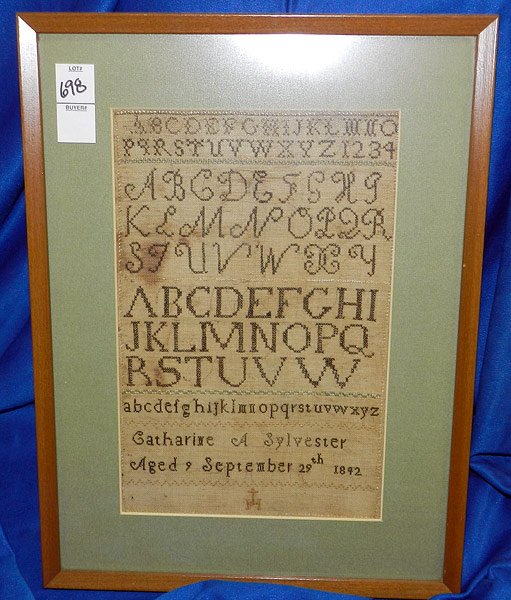 LOT#
698
BUYER#
ABCDEFGHIJKLMNO
PQRSTUVWXYZ1234
ABCDEFGHI
KLMNOPQR
STUVWXY
ABCDEFGHI
JKLMNOPQ
RSTUVW
abcdefghijklmnopqrstuvwxyz
Catharine A Sylvester
Aged 9 September 29th 1842